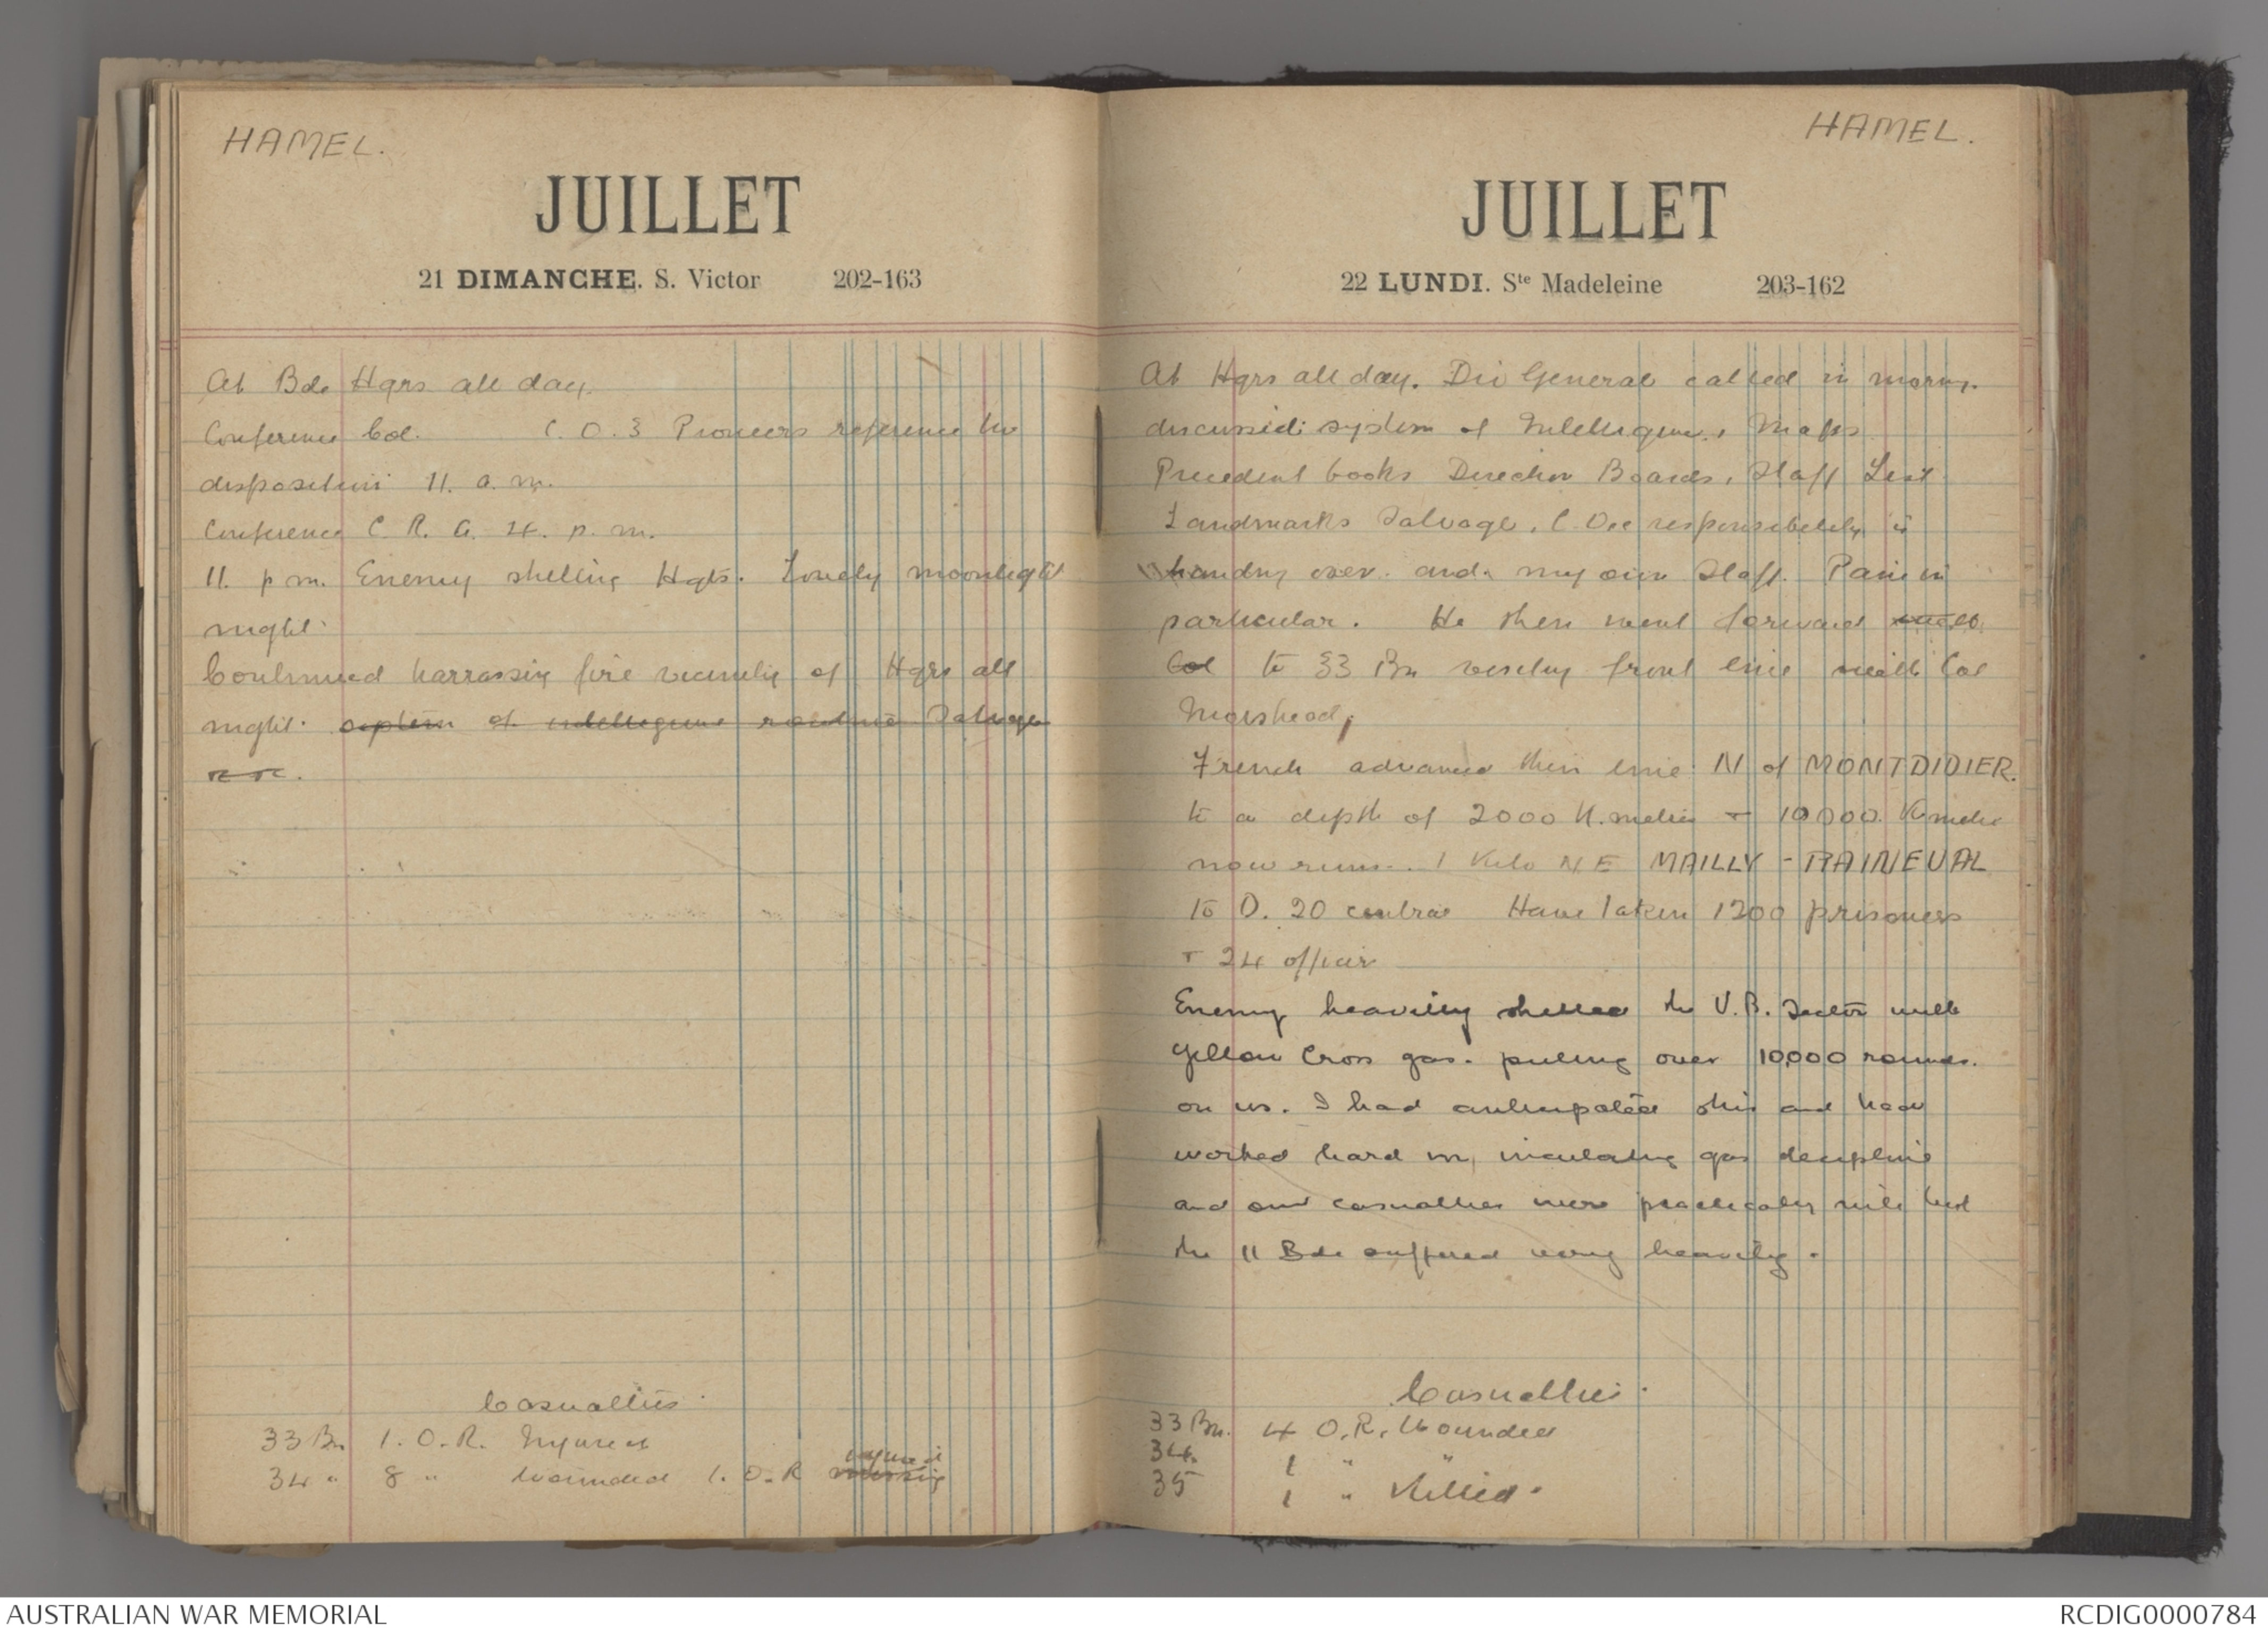 HAMEL.
JUILLET
21 DIMANCHE. S. Victor 202-163
At Bde Hqrs all day.
Conference Col. C.O. 3 Pioneers reference his
disposition 11. a. m.
Conference C. R. A. 4. p. m.
11. p m. Enemy shelling Hqts. Lovely moonlight
night.
Continued harrassing fire vicinity of Hqrs all
night. system of intelligence routine Salvage
etc.
Casualties.
33 Bn 1. O.R. Injured
34 " 8 " Wounded 1. O.R missing
injured
HAMEL.
JUILLET
22 LUNDI. Ste Madeleine 203-162
At Hqrs all day. Div General called in morng.
discussed: system of Intelligence, Maps
Precedent books Direction Boards, Staff List
Landmarks Salvage, C.O.s responsibility in
handing over. and my own Staff. in
particular. He then went forward with
Col to 33 Bn visiting front line with Col
Morshead,
French advanced their line N of MONTDIDIER.
to a depth of 2000 K.metres + 10000. Kmetre
now runs. 1 Kilo N E MAILLY - RAINEVAL
to O. 20 central Have taken 1200 prisoners
+ 24 officers
Enemy heavily shelled the V.B. Sector with
Yellow Cross gas. putting over 10,000 rounds.
on us. I had anticipated this and had
worked hard in inculcating gas discipline
and our casualties were practically nil but
the 11 Bde suffered very heavily.
Casualties.
33 Bn. 4 O.R. Wounded
34. 1 " "
35 1 " Killed.
AUSTRALIAN WAR MEMORIAL
RCDIG0000784